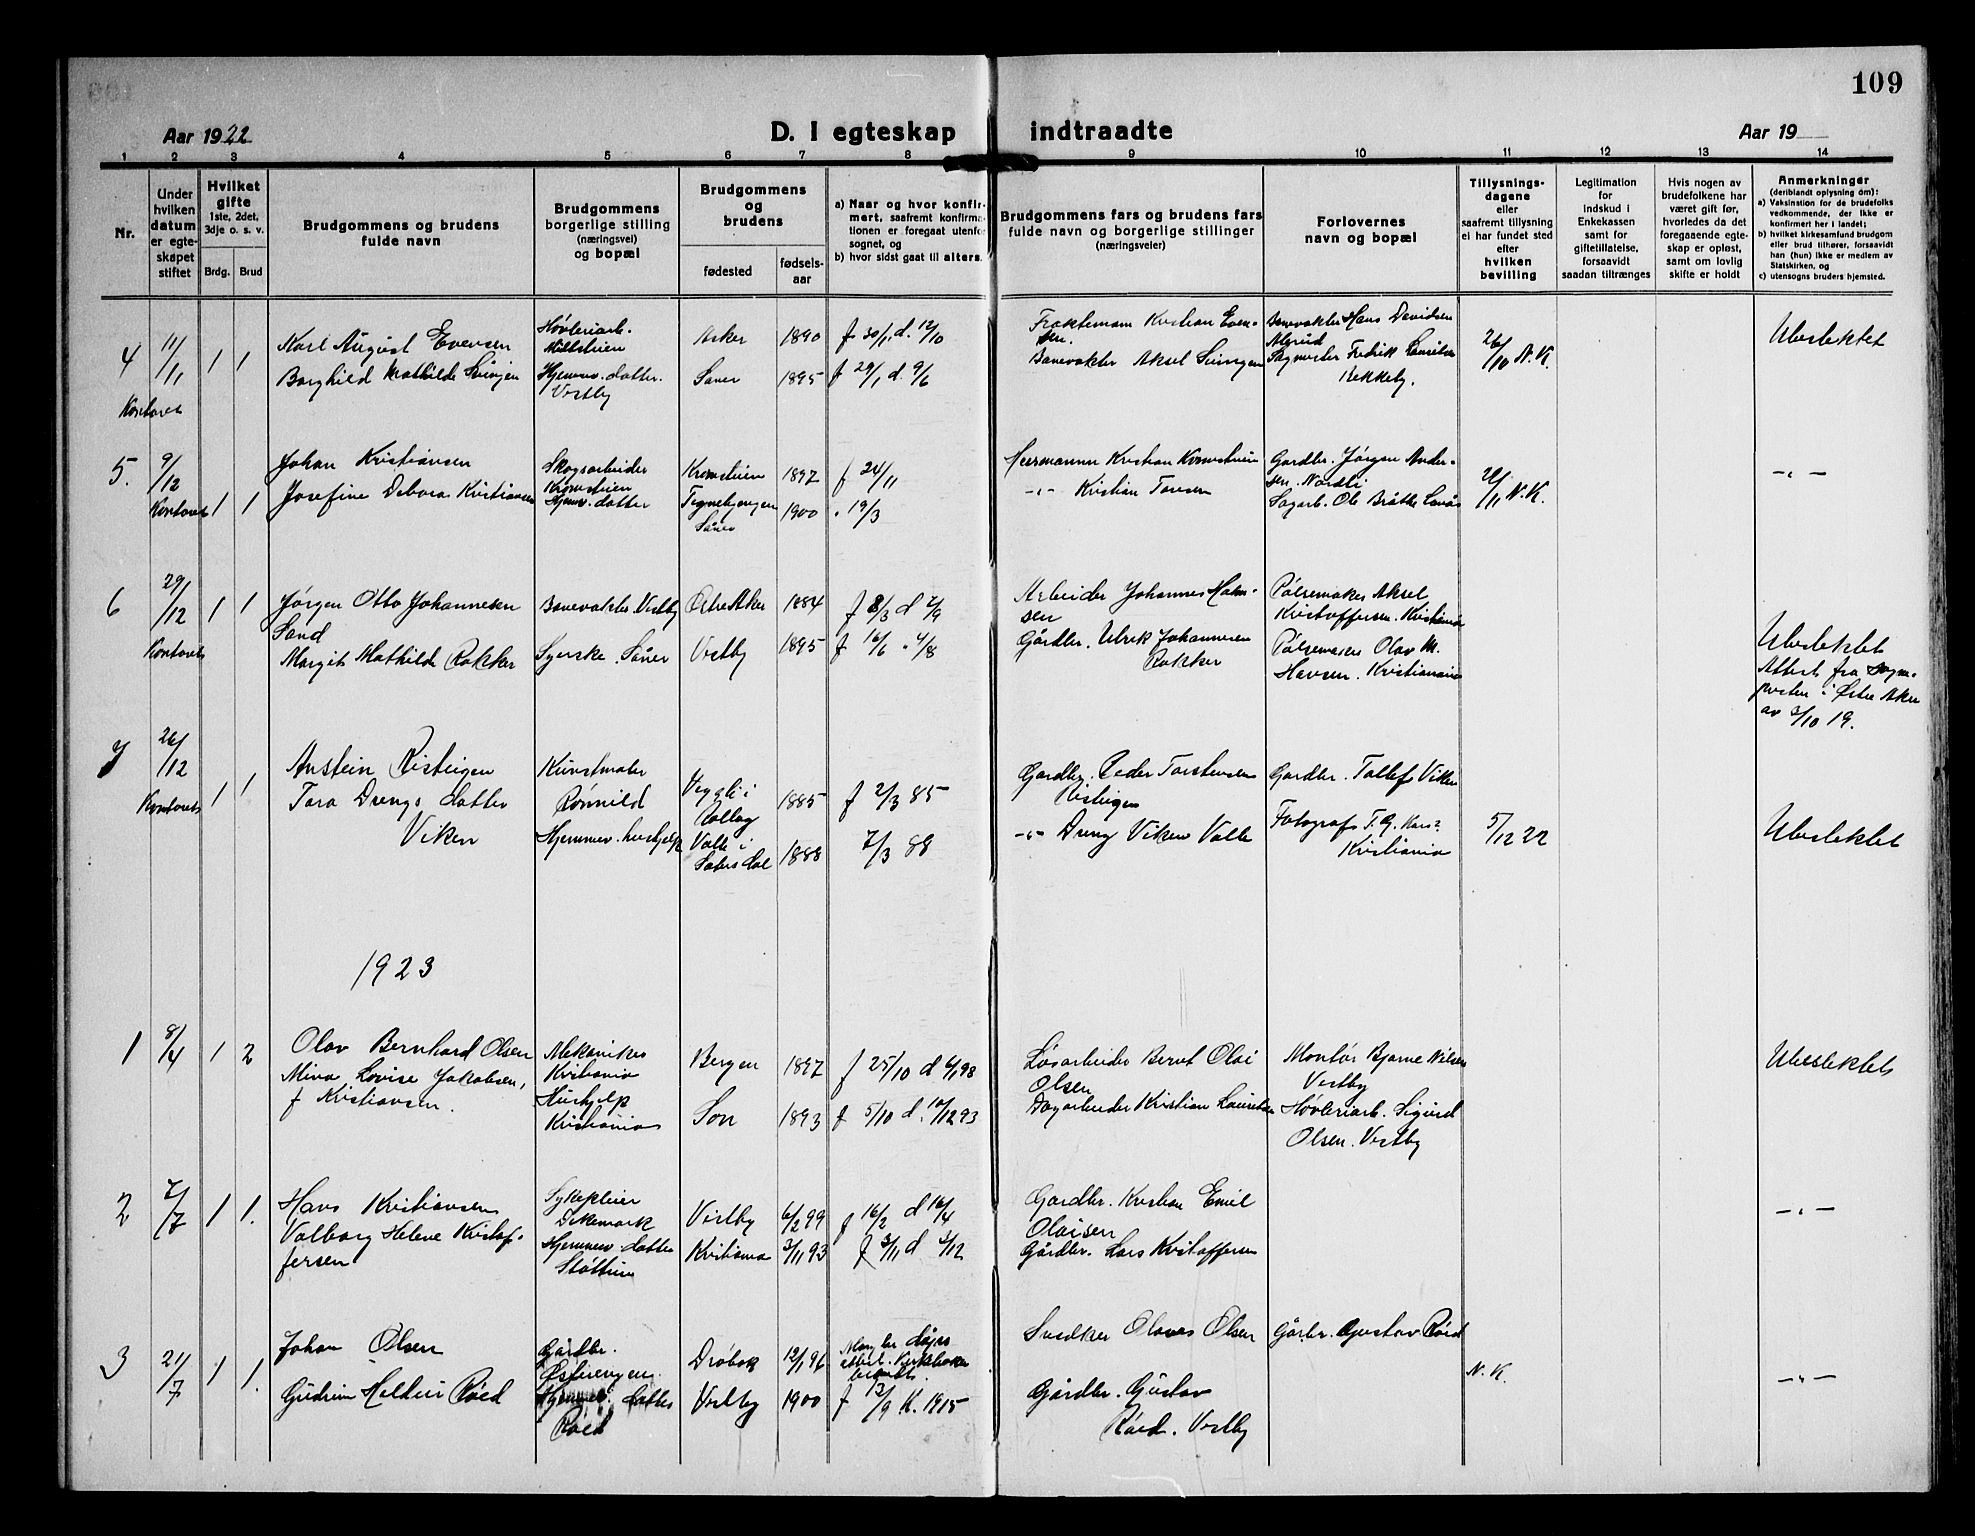 109
Aar 1922
D. I egteskap indtraadte
Aar 19
1 2 3 4 5 6 7 8 9 10 11 12 13 14
Nr.
Under
hvilken
datum
er egte-
skapet
stiftet
Hvilket
gifte
1ste, 2det,
3dje o. s. v.
Brdg. Brud
Brudgommens og brudens
fulde navn
Brudgommens
borgerlige stilling
(næringsvei)
og bopæl
Brudgommens
og
brudens
fødested
fødsels-
aar
a) Naar og hvor konfir-
mert, saafremt konfirma-
tionen er foregaat utenfor
sognet, og
b) hvor sidst gaat til alters.
Brudgommens fars og brudens fars
fulde navn og borgerlige stillinger
(næringsveier)
Forlovernes
navn og bopæl
Tillysnings-
dagene
eller
saafremt tillysning
ei har fundet sted
efter
hvilken
bevilling
Legitimation
for
indskud i
Enkekassen
samt for
giftetillatelse,
forsaavidt
saadan tiltrænges
Hvis nogen av
brudefolkene har
været gift før,
hvorledes da det
foregaaende egte-
skap er opløst,
samt om lovlig
skifte er holdt
Anmerkninger
(deriblandt oplysning om):
a) Vaksination for de brudefolks
vedkommende, der ikke er
konfirmert her i landet;
b) hvilket kirkesamfund brudgom
eller brud tilhører, forsaavidt
han (hun) ikke er medlem av
Statskirken, og
c) utensogns bruders hjemsted.
4
11/11
Kontoret
1 1
Karl August Evensen
Borghild Mathilde
Høvleriarb.
Hjemmev. datter.
Vestby
Asker 1890
f 30/1 d. 12/10
Saner 1895
f 29/1 d. 9/6
Kristian Even-
sen.
Banevokter Aksel
Banevokter Hans Davidsen
Fredrik
26/10 N.K.
Ubeslektet
5.
9/12
Kontoret
1 1
Johan Kristiansen
Josefine Debora Kristiansen
Skogsarbeider
Kromstien
Hjemv. datter
Kromstien 1897
f 24/11
Såner 1900
" 19/3
Kristian
-"- Kristian Toresen
Gardbr. Jørgen Ander-
sen. Nordli
Sagarb. Ole Bråtte
N.K.
-"-
6
29/12
Kontoret
1 1
Jørgen Otto Johannesen
Sand
Margit Mathilde Rokker
Banevokter. Vestby
Syerske. Såner
Østre Aker 1884
f 8/3 d 7/9
Vestby 1895
f 16/6 " 4/8
Arbeider Johannes
Gårdbr. Ulrik Johannesen
Rokker
Pølsemaker Aksel
Kristoffersen. Kristiania
Pølsemaker Olav M.
Hansen. Kristiania
Ubeslektet
Attest fra sogne-
presten i Østre Aker
av 3/10 19.
7
26/12
Kontoret
1 1
Anstein Risteigen
Tora Drengs datter
Viken
Kunstmaler
Rønnild
Hjemmev. hushjelp
Veggli i
Rollag 1885
f 2/3 85
Valle i
Setesdal 1888
7/3 88
Gardbr. Peder Torstensen
Risteigen
-"- Dreng Viken Valle
Gardbr. Tollef Viken
Fotograf T. G.
Kristiania
5/12 22
Ubeslektet
1923
1
8/4
1 2
Olav Bernhard Olsen
Mina Lovise Jakobsen,
f Kristiansen.
Mekaniker
Kristiania
Hushjelp
Kristiania
Bergen 1897
f 25/10 d 6/1 98
Son 1893
f 5/10 d. 10/12 93
Løsarbeider Bernt Olai
Olsen
Dagarbeider Kristian Lauritsen
Montør Bjarne Nilsen
Vestby
Høvleriarb. Sigurd
Olsen. Vestby
Ubeslektet
2
7/7
1 1.
Hans Kristiansen
Valborg Helene Kristof-
fersen
Sykepleier
Dikemark
Hjemmev. datter
Støttum
Vestby 6/2 99
f 16/2 d 16/4
Kristiania 3/11 93
f 3/11 d 3/12
Gardbr. Kristian Emil
Olaisen
Gårdbr. Lars Kristoffersen
-"-
3
21/7
1 1.
Johan Olsen
Gudrun Røed
Gårdbr.
Østrengen.
Hjemmev. datter
Røed
Drøbak 12/1 96
Mangler dåps
attest. Kirkeboken
brendt.
Vestby 1900
f 12/9 K. 1915
Snedker Olaves Olsen
Gårdbr. Gustav
Røed. Vestby
Gårbr. Gustav Røed
N.K.
-"-